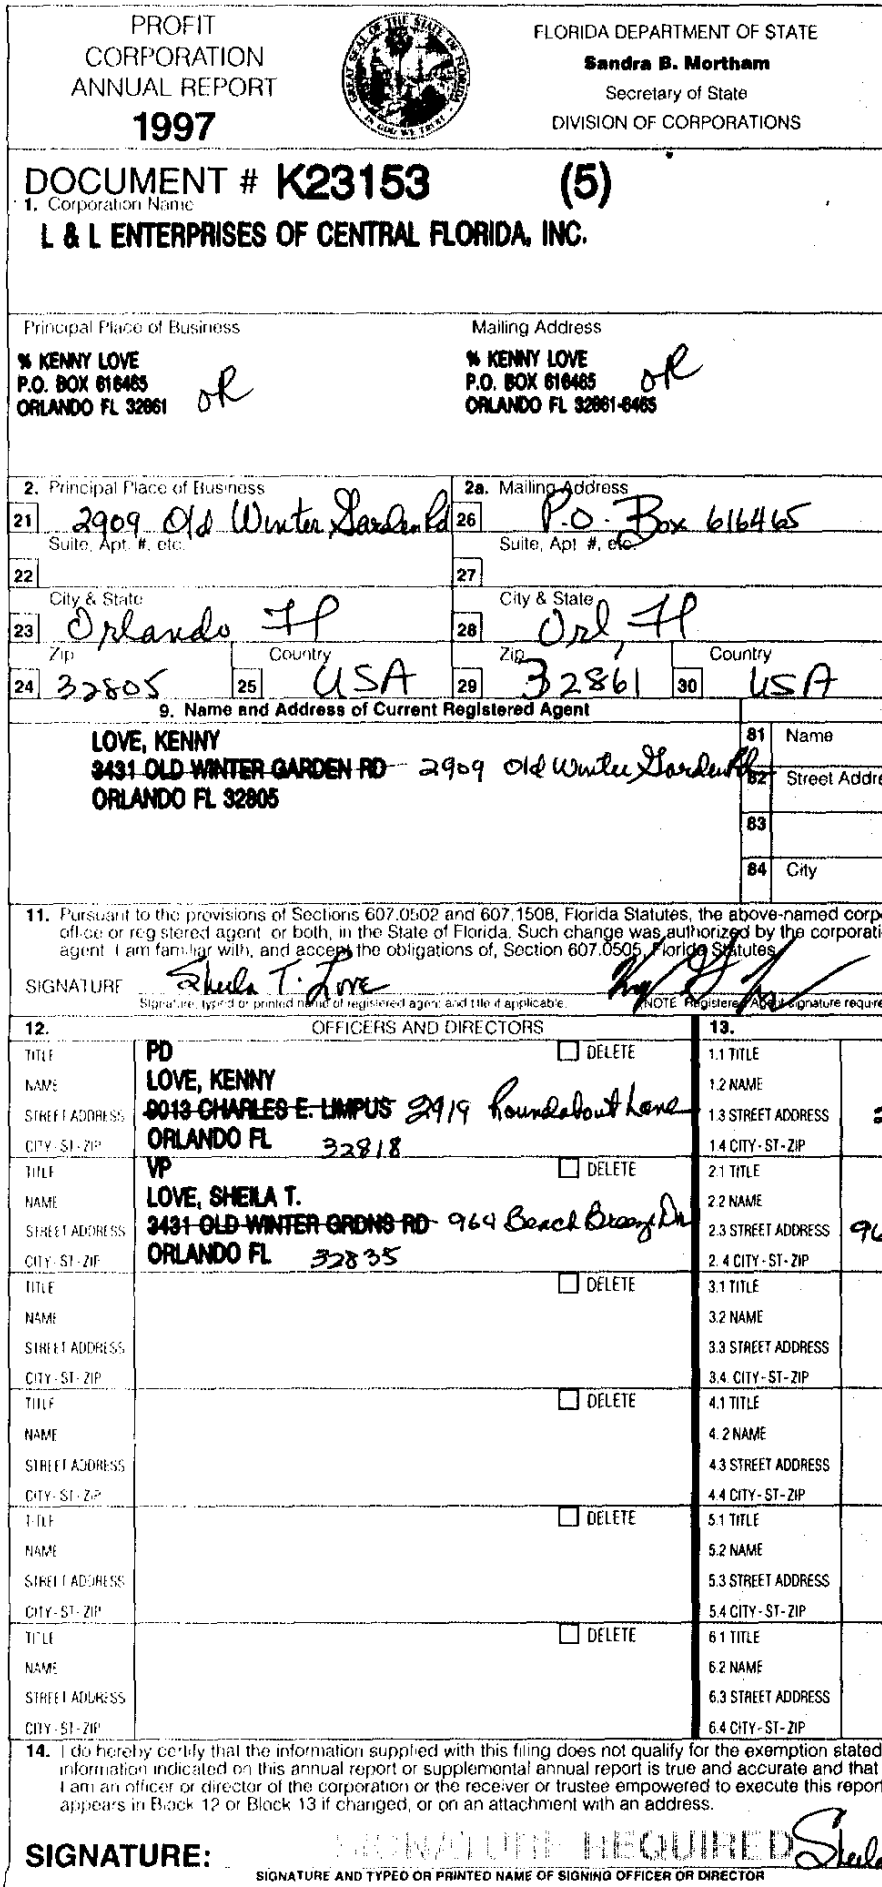 PROFIT
CORPORATION
ANNUAL REPORT
1997
GREAT SEAL OF THE STATE OF FLORIDA
IN GOD WE TRUST
FLORIDA DEPARTMENT OF STATE
Sandra B. Mortham
Secretary of State
DIVISION OF CORPORATIONS
DOCUMENT # K23153 (5)
1. Corporation Name
L & L ENTERPRISES OF CENTRAL FLORIDA, INC.
Principal Place of Business
% KENNY LOVE
P.O. BOX 616465
ORLANDO FL 32861
OR
Mailing Address
% KENNY LOVE
P.O. BOX 616465
ORLANDO FL 32861-6465
OR
2. Principal Place of Business
21 2909 Old Winter Garden Rd
Suite, Apt. #, etc.
22
City & State
23 Orlando Fl
Zip Country
24 32805 25 USA
2a. Mailing Address
26 P.O. Box 616465
Suite, Apt. #, etc.
27
City & State
28 Orl, Fl
Zip Country
29 32861 30 USA
9. Name and Address of Current Registered Agent
LOVE, KENNY
3431 OLD WINTER GARDEN RD 2909 Old Winter Garden Rd
ORLANDO FL 32805
81 Name
82 Street Addre
83
84 City
11. Pursuant to the provisions of Sections 607.0502 and 607.1508, Florida Statutes, the above-named corp
office or registered agent or both, in the State of Florida. Such change was authorized by the corporati
agent I am familiar with, and accept the obligations of, Section 607.0505, Florida Statutes
SIGNATURE Sheila T. Love
Signature, typed or printed name of registered agent and title if applicable. NOTE Registered Agent signature require
12. OFFICERS AND DIRECTORS 13.
TITLE PD DELETE 1.1 TITLE
NAME LOVE, KENNY 1.2 NAME
STREET ADDRESS 9013 CHARLES E. LIMPUS 2919 Roundabout Lane 1.3 STREET ADDRESS 2
CITY-ST-ZIP ORLANDO FL 32818 1.4 CITY-ST-ZIP
TITLE VP DELETE 2.1 TITLE
NAME LOVE, SHEILA T. 2.2 NAME
STREET ADDRESS 3431 OLD WINTER GRDNS RD 964 Beach Breeze Dr 2.3 STREET ADDRESS 96
CITY-ST-ZIP ORLANDO FL 32835 2.4 CITY-ST-ZIP
TITLE DELETE 3.1 TITLE
NAME 3.2 NAME
STREET ADDRESS 3.3 STREET ADDRESS
CITY-ST-ZIP 3.4. CITY-ST-ZIP
TITLE DELETE 4.1 TITLE
NAME 4.2 NAME
STREET ADDRESS 4.3 STREET ADDRESS
CITY-ST-ZIP 4.4 CITY-ST-ZIP
TITLE DELETE 5.1 TITLE
NAME 5.2 NAME
STREET ADDRESS 5.3 STREET ADDRESS
CITY-ST-ZIP 5.4 CITY-ST-ZIP
TITLE DELETE 6.1 TITLE
NAME 6.2 NAME
STREET ADDRESS 6.3 STREET ADDRESS
CITY-ST-ZIP 6.4 CITY-ST-ZIP
14. I do hereby certify that the information supplied with this filing does not qualify for the exemption stated
information indicated on this annual report or supplemental annual report is true and accurate and that
I am an officer or director of the corporation or the receiver or trustee empowered to execute this report
appears in Block 12 or Block 13 if changed, or on an attachment with an address.
SIGNATURE: SIGNATURE REQUIRED Sheila
SIGNATURE AND TYPED OR PRINTED NAME OF SIGNING OFFICER OR DIRECTOR